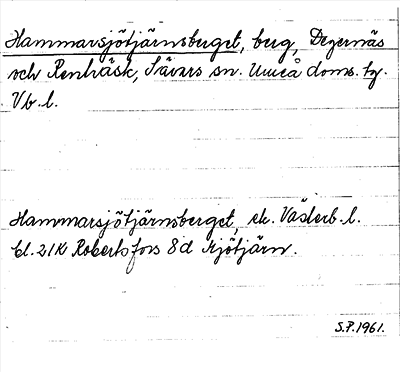 Hammarsjötjärnsberget, berg, Degernäs
och Renbräsk, Sävars sn. Umeå doms. tg.
Vb. l.
Hammarsjötjärnsberget, ek. Västerb. l.
bl. 21K Robertsfors 8d Sjötjärn.
S.P. 1961.